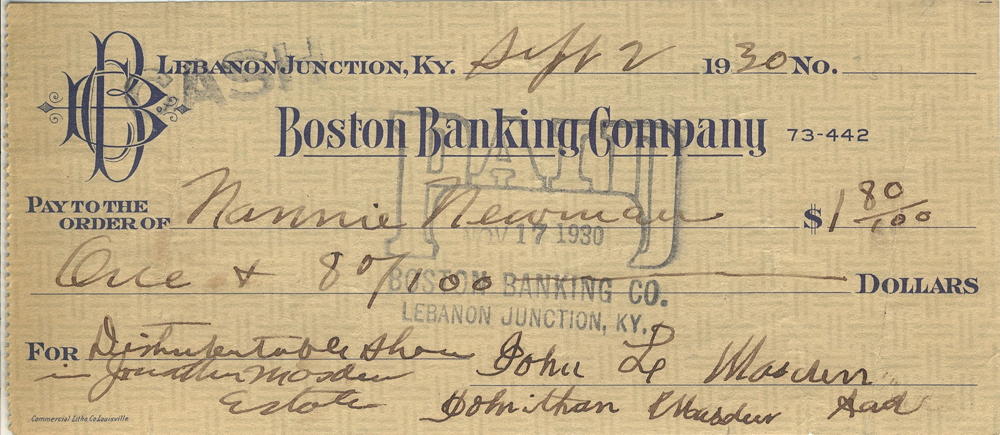 LEBANON JUNCTION, KY. Sept 2 1930 No.
CASH
BOSTON BANKING COMPANY 73-442
PAY TO THE ORDER OF Nannie Newman $1 80/100
PAID
NOV 17 1930
One + 80/100 DOLLARS
BOSTON BANKING CO.
LEBANON JUNCTION, KY.
FOR Distributable Share John L Masden
in Jonathan Masden
Estate Johnithan Masden
Commercial Litho Co Louisville